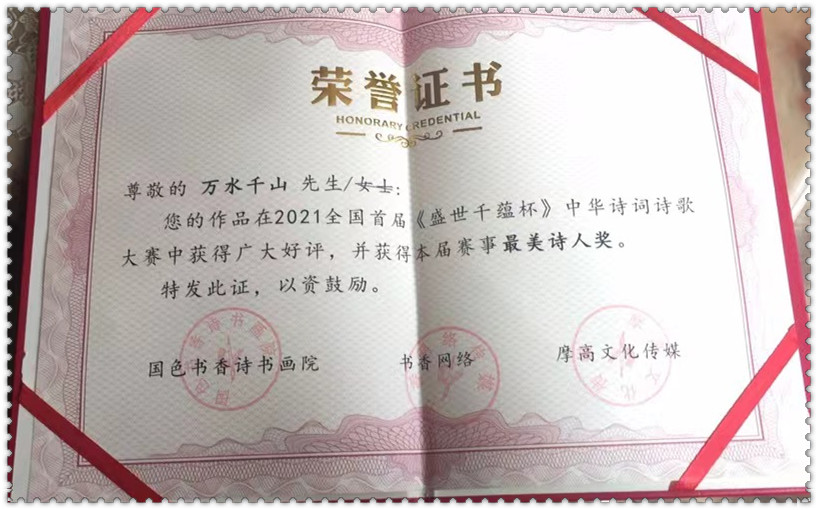 荣誉证书
HONORARY CREDENTIAL
尊敬的 万水千山 先生/女士:
您的作品在2021全国首届《盛世千蕴杯》中华诗词诗歌
大赛中获得广大好评，并获得本届赛事最美诗人奖。
特发此证，以资鼓励。
国色书香诗书画院 书香网络 摩高文化传媒